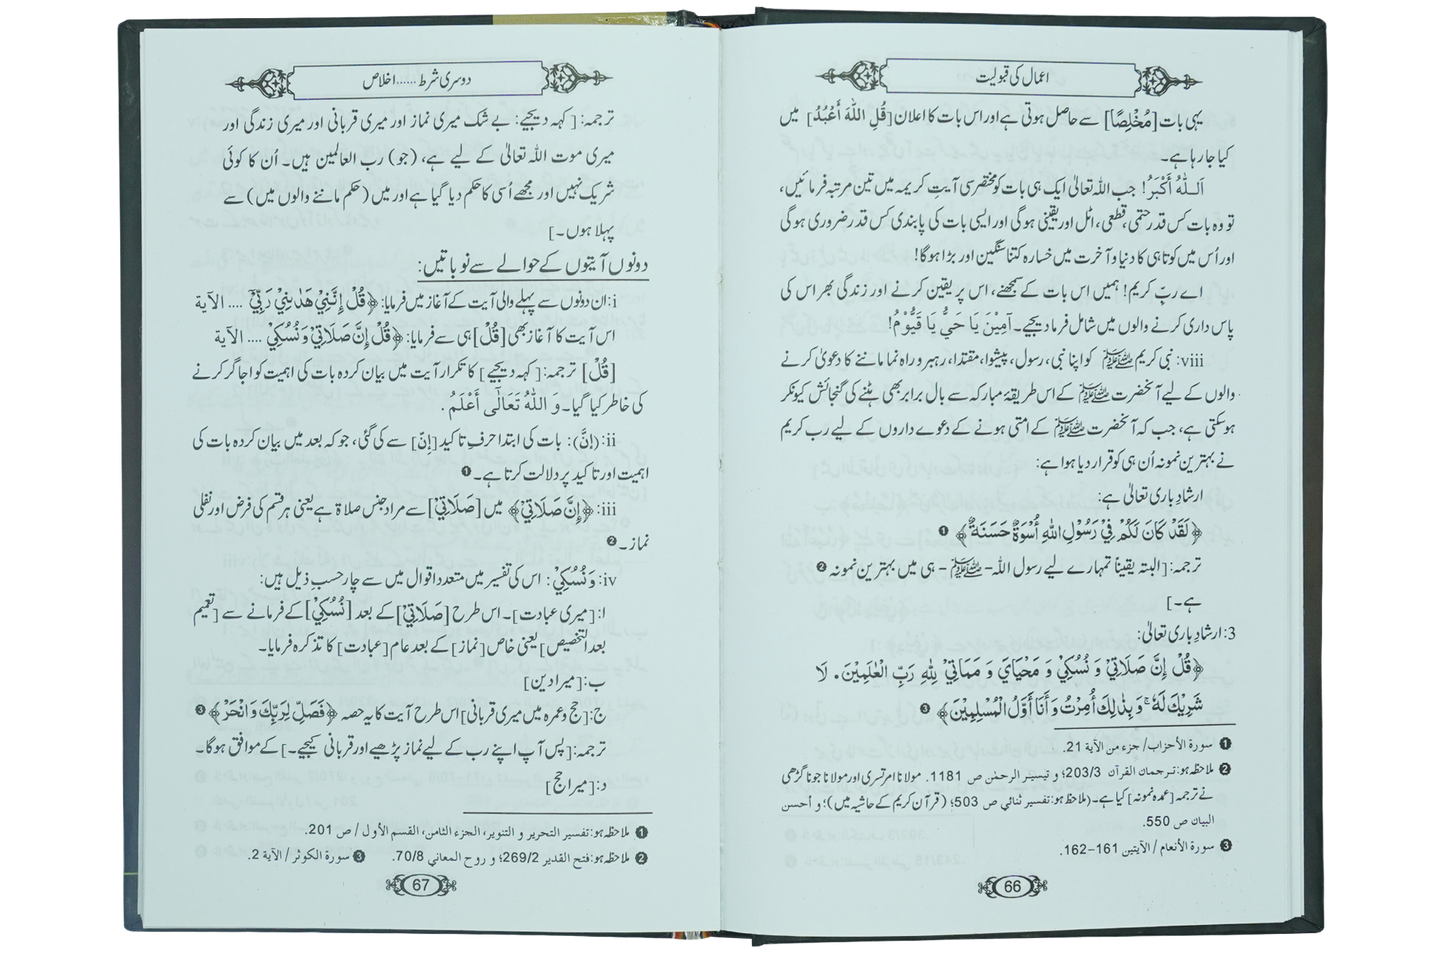 اعمال کی قبولیت
یہی بات [مُخْلِصًا] سے حاصل ہوتی ہے اور اس بات کا اعلان [قُلِ اللّٰهَ أَعْبُدُ] میں
کیا جا رہا ہے۔
اَللّٰهُ أَكْبَرُ! جب اللہ تعالیٰ ایک ہی بات کو مختصر سی آیتِ کریمہ میں تین مرتبہ فرمائیں،
تو وہ بات کس قدر حتمی، قطعی، اٹل اور یقینی ہوگی اور ایسی بات کی پابندی کس قدر ضروری ہوگی
اور اُس میں کوتاہی کا دنیا و آخرت میں خسارہ کتنا سنگین اور بڑا ہوگا!
اے ربِّ کریم! ہمیں اس بات کے سمجھنے، اس پر یقین کرنے اور زندگی بھر اس کی
پاس داری کرنے والوں میں شامل فرما دیجیے۔ آمِيْنَ يَا حَيُّ يَا قَيُّوْمُ!
viii: نبی کریم ﷺ کو اپنا نبی، رسول، پیشوا، مقتدا، رہبر و راہ نما ماننے کا دعویٰ کرنے
والوں کے لیے آنحضرت ﷺ کے اس طریقۂ مبارکہ سے بال برابر بھی ہٹنے کی گنجائش کیونکر
ہوسکتی ہے، جب کہ آنحضرت ﷺ کے امتی ہونے کے دعوے داروں کے لیے رب کریم
نے بہترین نمونہ اُن ہی کو قرار دیا ہوا ہے:
ارشادِ باری تعالیٰ ہے:
﴿لَقَدْ كَانَ لَكُمْ فِيْ رَسُوْلِ اللّٰهِ أُسْوَةٌ حَسَنَةٌ﴾ ❶
ترجمہ: [البتہ یقیناً تمہارے لیے رسول اللہ- ﷺ - ہی میں بہترین نمونہ ❷
ہے۔]
3: ارشادِ باری تعالیٰ:
﴿قُلْ إِنَّ صَلَاتِيْ وَ نُسُكِيْ وَ مَحْيَايَ وَ مَمَاتِيْ لِلّٰهِ رَبِّ الْعٰلَمِيْنَ. لَا
شَرِيْكَ لَهٗ ۚ وَ بِذٰلِكَ أُمِرْتُ وَ أَنَا أَوَّلُ الْمُسْلِمِيْنَ﴾ ❸
❶ سورة الأحزاب/ جزء من الآية 21.
❷ ملاحظہ ہو: ترجمان القرآن 203/3 و تیسیر الرحمٰن ص 1181. مولانا امرتسری اور مولانا جونا گڑھی
نے ترجمہ [عمدہ نمونہ] کیا ہے۔ (ملاحظہ ہو: تفسیر ثنائی ص 503؛ (قرآن کریم کے حاشیہ میں)؛ و أحسن
البیان ص 550.
❸ سورة الأنعام/ الآيتين 161-162.
66
دوسری شرط......اخلاص
ترجمہ: [کہہ دیجیے: بے شک میری نماز اور میری قربانی اور میری زندگی اور
میری موت اللہ تعالیٰ کے لیے ہے، (جو) رب العالمین ہیں۔ اُن کا کوئی
شریک نہیں اور مجھے اُسی کا حکم دیا گیا ہے اور میں (حکم ماننے والوں میں) سے
پہلا ہوں۔]
دونوں آیتوں کے حوالے سے نو باتیں:
i: ان دونوں سے پہلے والی آیت کے آغاز میں فرمایا: ﴿قُلْ إِنَّنِيْ هَدٰىنِيْ رَبِّيْ .... الآية
اس آیت کا آغاز بھی [قُلْ] ہی سے فرمایا: ﴿قُلْ إِنَّ صَلَاتِيْ وَ نُسُكِيْ .... الآية
[قُلْ] ترجمہ: [کہہ دیجیے] کا تکرار آیت میں بیان کردہ بات کی اہمیت کو اجاگر کرنے
کی خاطر کیا گیا۔ وَ اللّٰهُ تَعَالٰى أَعْلَمُ.
ii: (إِنَّ): بات کی ابتدا حرفِ تاکید [إِنّ] سے کی گئی، جو کہ بعد میں بیان کردہ بات کی
اہمیت اور تاکید پر دلالت کرتا ہے۔ ❶
iii: ﴿إِنَّ صَلَاتِيْ﴾ میں [صَلَاتِيْ] سے مراد جنس صلاۃ ہے یعنی ہر قسم کی فرض اور نفلی
نماز۔ ❷
iv: وَ نُسُكِيْ: اس کی تفسیر میں متعدد اقوال میں سے چار حسبِ ذیل ہیں:
ا: [میری عبادت]۔ اس طرح [صَلَاتِيْ] کے بعد [نُسُكِيْ] کے فرمانے سے [تعمیم
بعد التخصیص] یعنی خاص [نماز] کے بعد عام [عبادت] کا تذکرہ فرمایا۔
ب: [میرا دین]
ج: [حج و عمرہ میں میری قربانی] اس طرح آیت کا یہ حصہ ﴿فَصَلِّ لِرَبِّكَ وَ انْحَرْ﴾ ❸
ترجمہ: [پس آپ اپنے رب کے لیے نماز پڑھیے اور قربانی کیجیے۔] کے موافق ہوگا۔
د: [میرا حج]
❶ ملاحظہ ہو: تفسير التحرير و التنوير، الجزء الثامن، القسم الأول/ ص 201.
❷ ملاحظہ ہو: فتح القدير 269/2؛ و روح المعاني 70/8. ❸ سورة الكوثر/ الآية 2.
67